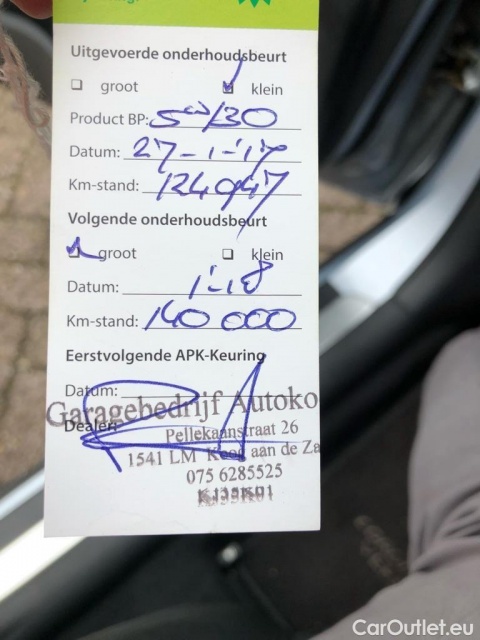 Uitgevoerde onderhoudsbeurt
groot klein
Product BP: 5W/30
Datum: 27-1-'17
Km-stand: 124947
Volgende onderhoudsbeurt
groot klein
Datum: 1-'18
Km-stand: 140 000
Eerstvolgende APK-Keuring
Datum:
Dealer:
Garagebedrijf Autoko
Pellekaanstraat 26
1541 LM Koog aan de Za
075 6285525
CarOutlet.eu